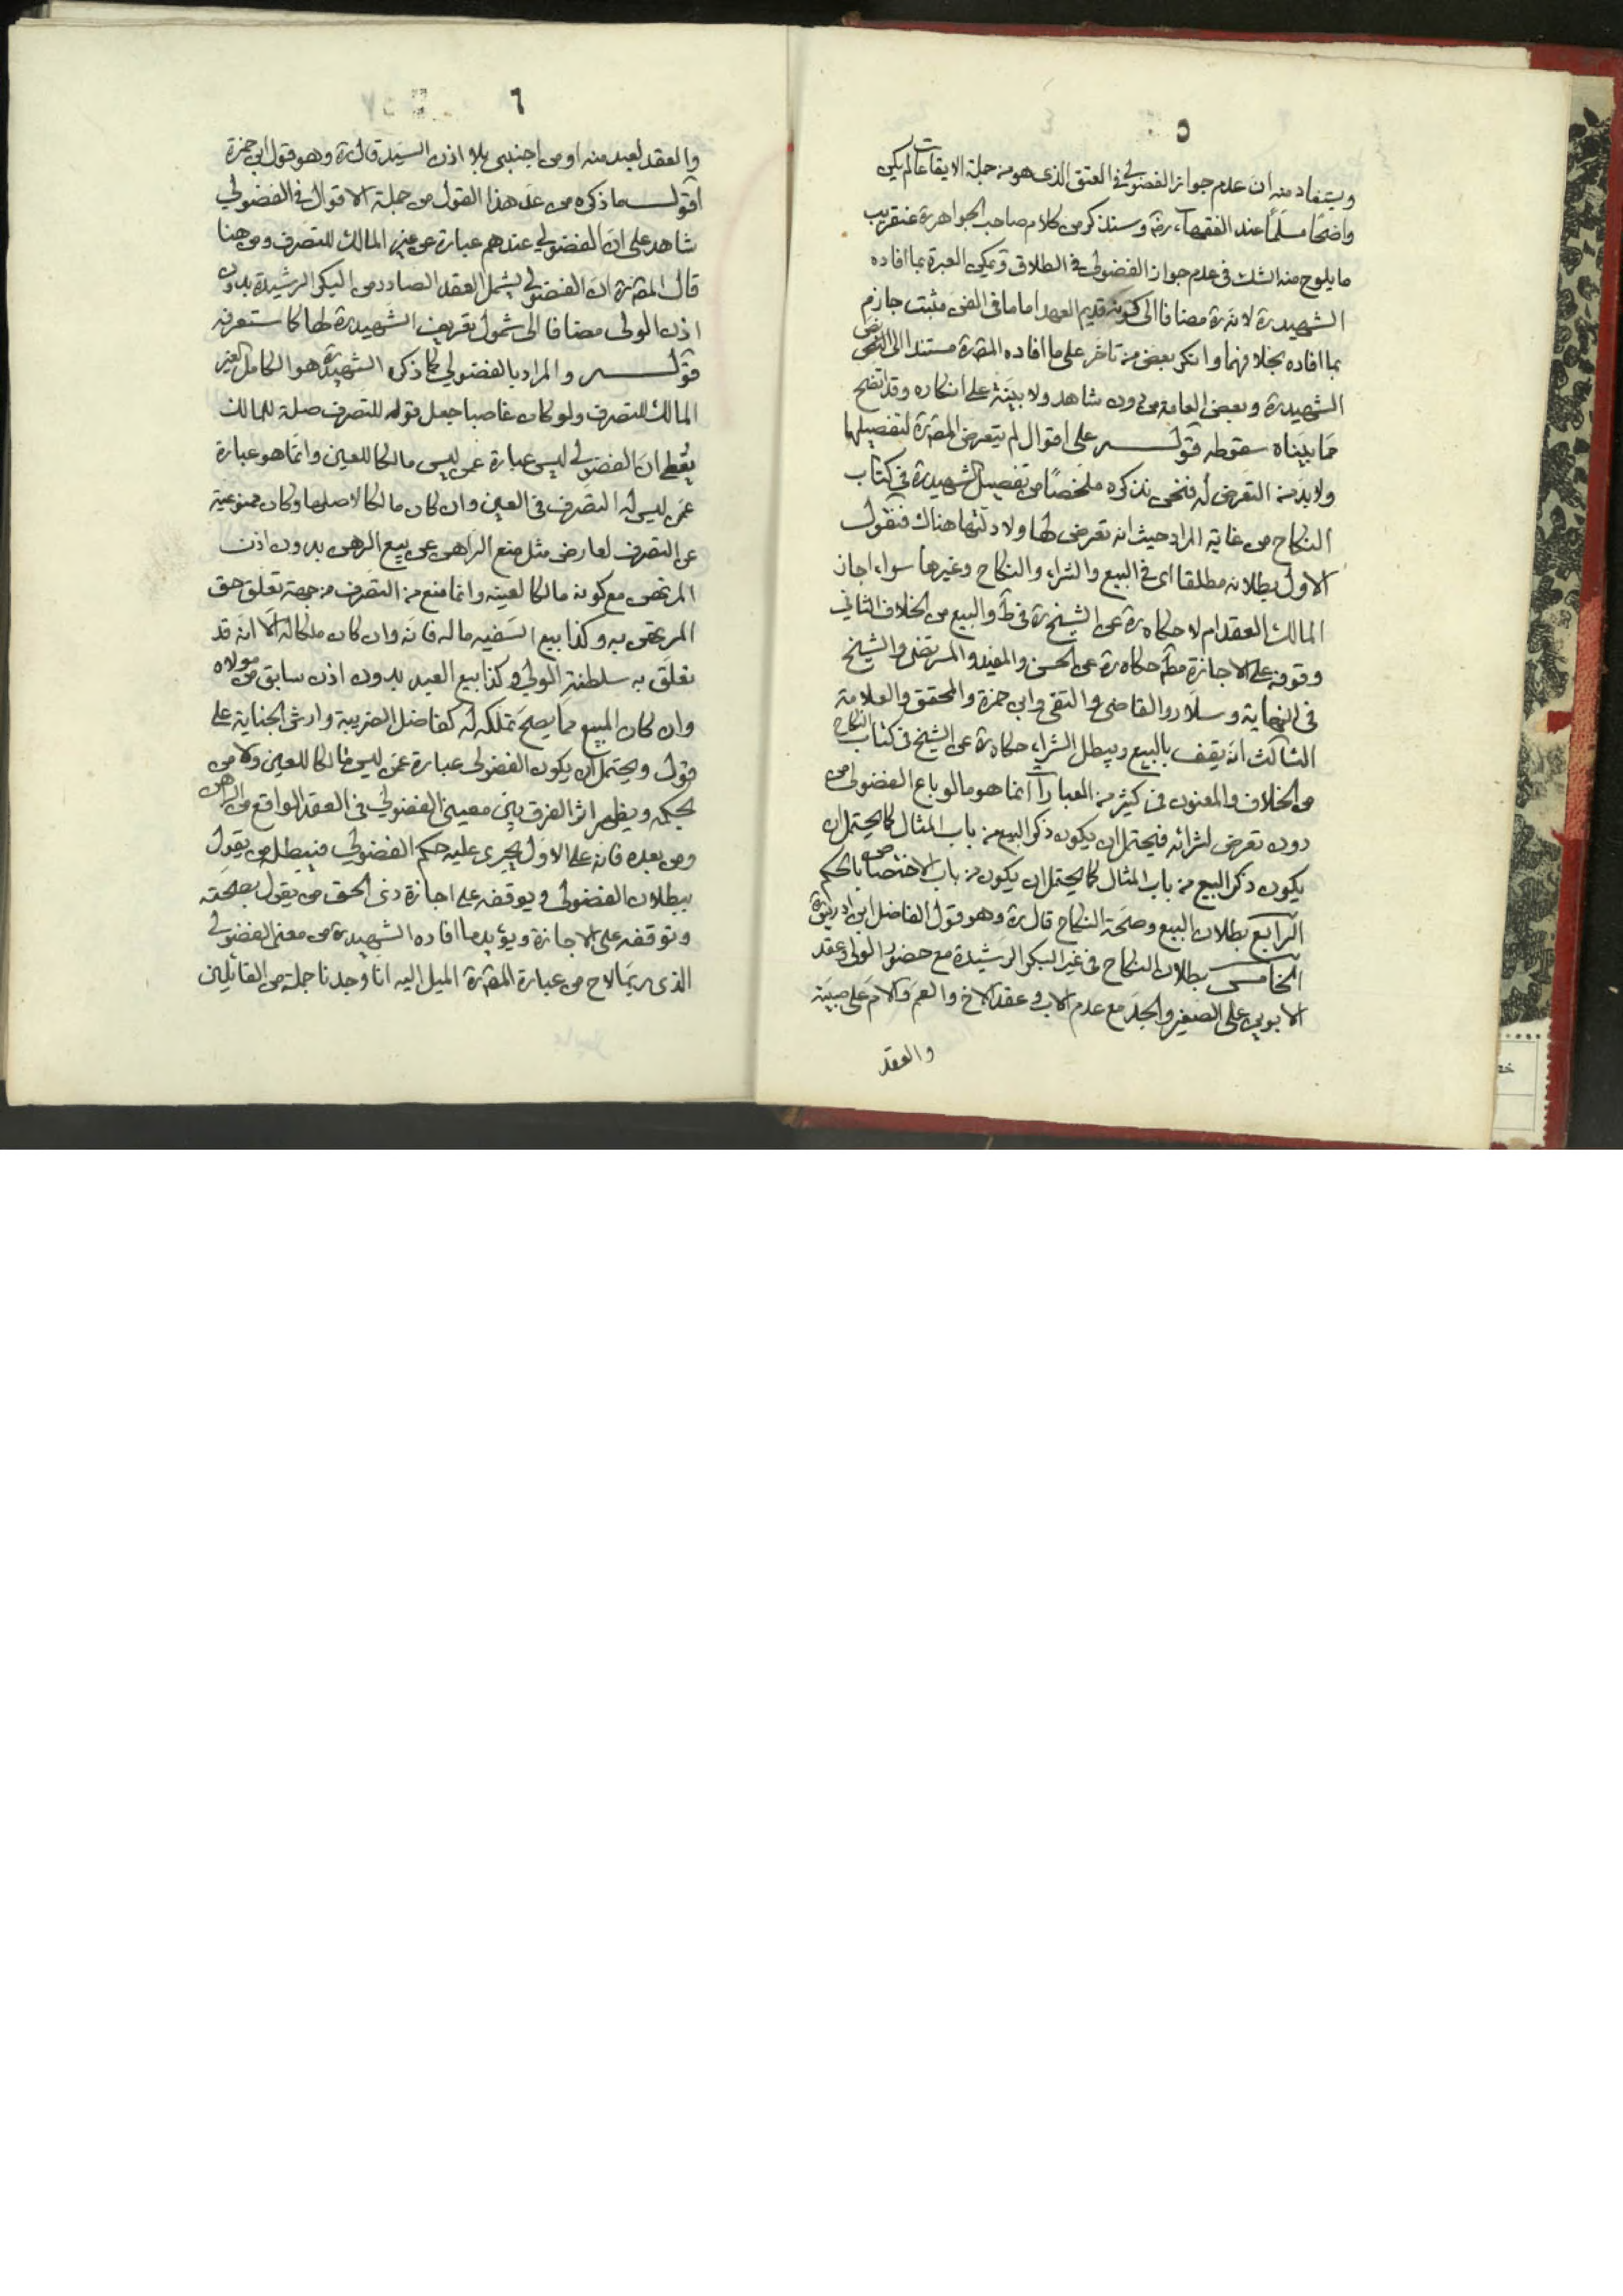 ٥
ويستفاد منه ان عدم جواز الفضولي في العتق الذي هو من جملة الايقاعات لم يكن
واضحا مسلما عند الفقهاء رضه وسنذكر من كلام صاحب الجواهر ره عنقريب
ما يلوح منه الشك في عدم جواز الفضولي في الطلاق ويمكن العبرة بما افاده
الشهيد ره لانه ره مضافا الى كونه قديم العهد اماما في الفن مثبت جازم
بما افاده بخلافهما وانكر بعض من تاخر على ما افاده المص ره مستندا الى
الشهيد ره وبعض العامة من دون شاهد ولا بينة على انكاره وقد اتضح
مما بيناه سقوطه قوله على اقوال لم يتعرض المص ره لتفصيلها
ولا بد من التعرض له فنحن نذكره ملخصا من تفصيل الشهيد ره في كتاب
النكاح من غاية المراد حيث انه تعرض لها ولادلتها هناك فنقول
الاول بطلانه مطلقا اى في البيع والشراء والنكاح وغيرها سواء اجاز
المالك العقد ام لا حكاه ره عن الشيخ ره في ط والبيع من الخلاف الثاني
وقوفه على الاجازة مط حكاه ره عن الحسن والمفيد والمرتضى والشيخ
في النهاية وسلار والقاضي والتقى وابن حمزة والمحقق والعلامة
الثالث انه يقف بالبيع ويبطل الشراء حكاه ره عن الشيخ في كتاب النكاح
من الخلاف والمعنون في كثير من العبارات انما هو ما لو باع الفضولي من
دون تعرض لشرائه فيحتمل ان يكون ذكر البيع من باب المثال كما يحتمل ان
يكون ذكر البيع من باب المثال كما يحتمل ان يكون من باب الاختصاص بالحكم
الرابع بطلان البيع وصحة النكاح قال ره وهو قول الفاضل ابن ادريس ره
الخامس بطلان النكاح في غير البكر الرشيدة مع حضور الولى وعقد
الابوين على الصغير والجد مع عدم الاب وعقد الاخ والعم والام على صبية
والعقد
٦
والعقد لعبد منه او من اجنبى بلا اذن السيد قال ره وهو قول ابن حمزة
اقول ما ذكره من عد هذا القول من جملة الاقوال في الفضولي
شاهد على ان الفضولي عندهم عبارة عن غير المالك للتصرف ومن هنا
قال المص ره ان الفضولي يشمل العقد الصادر من البكر الرشيدة بدون
اذن الولى مضافا الى شمول تعريف الشهيد ره لها كما ستعرفه
قوله والمراد بالفضولي كما ذكره الشهيد ره هو الكامل الغير
المالك للتصرف ولو كان غاصبا جعل قوله للتصرف صلة للمالك
يعطى ان الفضولي ليس عبارة عمن ليس مالكا للعين وانما هو عبارة
عمن ليس له التصرف في العين وان كان مالكا لاصلها وكان ممنوعية
عن التصرف لعارض مثل منع الراهن عن بيع الرهن بدون اذن
المرتهن مع كونه مالكا لعينه وانما منع من التصرف من جهة تعلق حق
المرتهن به وكذا بيع السفيه ماله فانه وان كان ملكا له الا انه قد
تعلق به سلطنة الولي وكذا بيع العبد بدون اذن سابق من مولاه
وان كان المبيع مما يصح تملكه له كفاضل الضريبة وارش الجناية على
قول ويحتمل ان يكون الفضولي عبارة عمن ليس مالكا للعين ولا من
بحكمه ويظهر اثر الفرق بين معينى الفضولي في العقد الواقع من الراهن
ومن بعده فانه على الاول يجرى عليه حكم الفضولي فيبطله من يقول
ببطلان الفضولي ويوقفه على اجازة ذى الحق من يقول بصحته
وتوقفه على الاجازة ويؤيد ما افاده الشهيد ره من معنى الفضولي
الذى ربما لاح من عبارة المص ره الميل اليه انا وجدنا جملة من القائلين